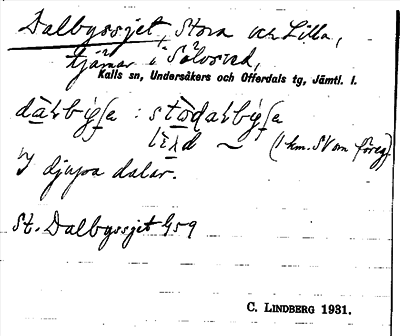 Dalbyssjet, Stora och Lilla,
tjärnar i Sölvsved,
Kalls sn, Undersåkers och Offerdals tg, Jämtl. l.
(1 km. SV om föreg)
I djupa dalar.
St. Dalbyssjet 459
C. LINDBERG 1931.